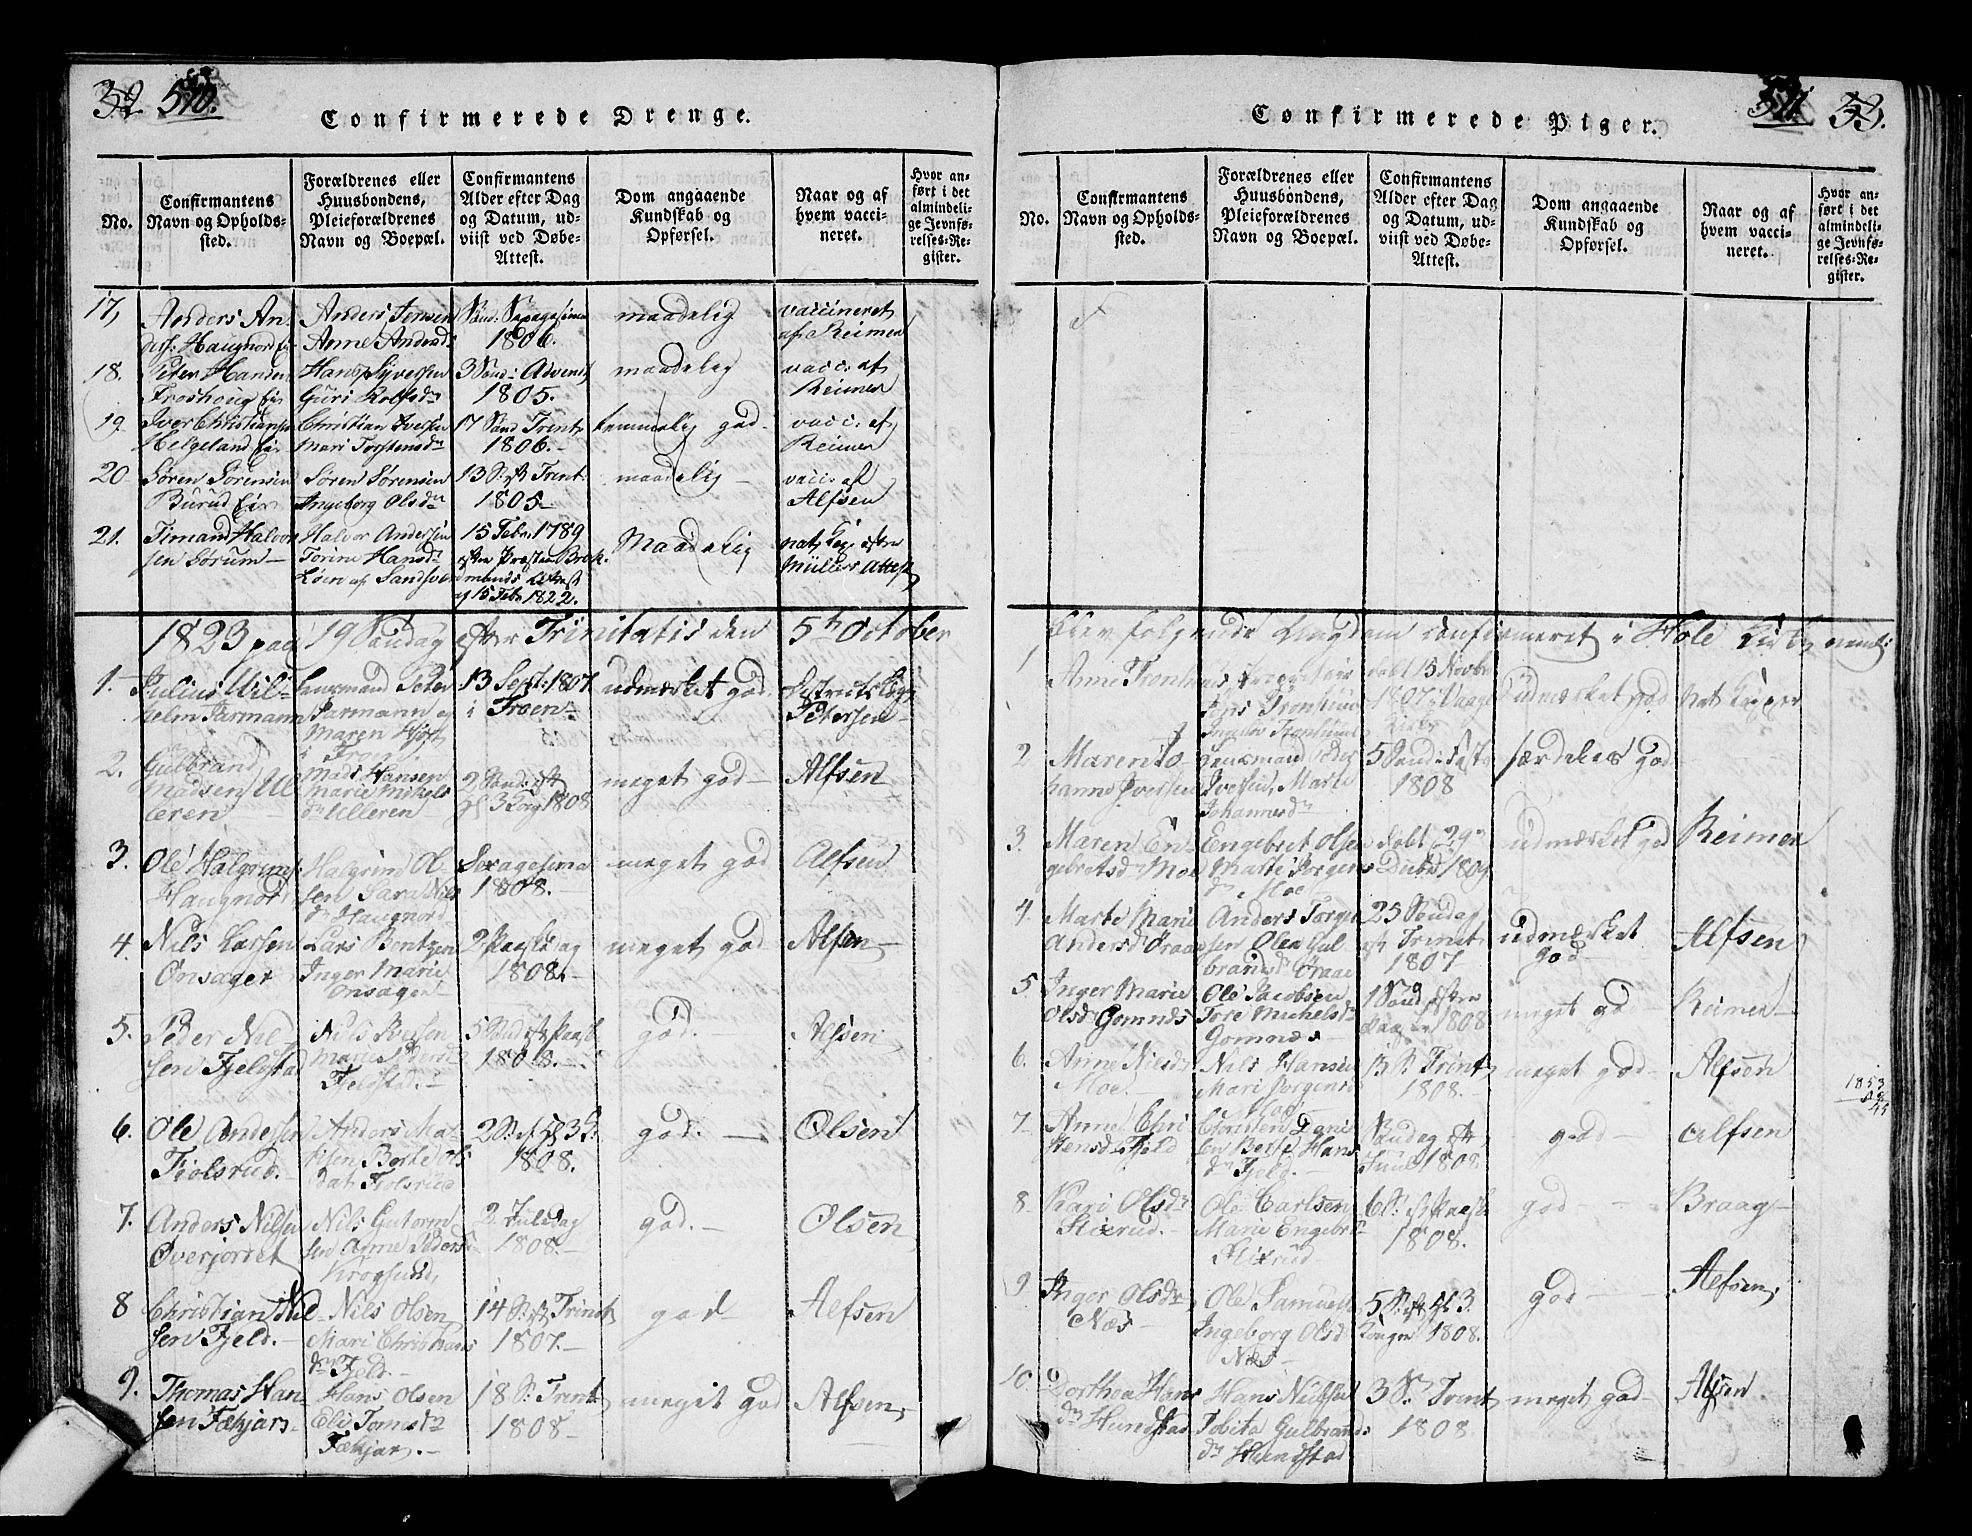 32 510.
Confirmerede Drenge.
No.
Confirmantens
Navn og Opholds-
sted.
Forældrenes eller
Huusbondens,
Pleieforældrenes
Navn og Boepæl.
Confirmantens
Alder efter Dag
og Datum, ud-
viist ved Døbe-
Attest.
Dom angaaende
Kundskab og
Opførsel.
Naar og af
hvem vacci-
neret.
Hvor an-
ført i det
almindeli-
ge Jevnfø-
relses-Re-
gister.
17,
Anders An-
Haugnor Ei
Anders Jensen
Anne Andersd:
Sönd: Sexagesima
1806.
maadelig
vaccineret
af Reimer
18.
Peter Hansen
Froshoug Ei
Hans Syversen
Guri Rolfsdr
3 Sönd: Advent,
1805.
maadelig
vacc: af
Reimer
19.
Iver Christiansen
Helgeland Ei
Christian Iversen
Mari Torstensdr
17 Sönd Trint,
1806.-
temmelig god-
vacc: af
Reimer
20
Sören Sörensen
Burud Ei
Sören Sörensen
Ingeborg Olsdr
13 S: eft Trint:
1805-
maadelig -
vacc: af
Alfsen
21.
Timand Halvor
sen Sørum-
Halvor Andersen
Torine Hansdr
af Sandsver
15 Febr. 1789
efter Præsten
15 Febr 1822.
Maadelig
nat, efter
Müllers Attest
1823 paa 19 Söndag efter Trinitatis den 5te October
1.
Julius Wil-
helm Parmann
Lensmand Peter
Parmann og
Maren
13 Sept: 1807
i Froen
udmærket god.
Districts Læge
Petersen-
2.
Gulbrand
Madsen Ul
leren-
Mads Hansen
Marie Mikels
dr Ulleren-
2 Sönd: eft
hl 3 Kong 1808
meget god-
Alfsen
3.
Ole Halgrims
Haugnord
Halgrim Ol-
sen Sara Nils
dr Haugnord
Sexagesima
1808.-
meget god
Alfsen
4.
Nils Larsen
Onsager
Lars Bentzen
Inger Marie
Onsager-
2 Paaskedag
1808.-
meget god
Alfsen-
5.
Peder Nil-
sen Fjelstad
Nils Iversen
Marie
Fjelstad.-
5 Sönd eft Paask
1808.-
god.
Alfsen
6.
Ole Andersen
Fiolsrud.-
Anders Ma-
Berte Ols
dat Fiolsrud
2 S: ef hl 3 K:
1808.
god.-
Olsen
7.
Anders Nilsen
Overjordet
Nils Gutorm
sen Anne Peders
Krogsund,
2 Juledag
1808.-
god.-
Olsen
8
Christian Nil-
sen Fjeld.-
Nils Olsen
Mari Christians
dr Fjeld.-
14 S: eft Trint
1807.-
god-
Alfsen
9.
Thomas Han
sen Fækjær-
Hans Olsen
Eli Tomasdr
Fækjær.-
18 S: Trint
1808-
meget god
Alfsen,
511 33.
Confirmerede Piger.
No.
Confirmantens
Navn og Opholds-
sted.
Forældrenes eller
Huusbondens,
Pleieforældrenes
Navn og Boepæl.
Confirmantens
Alder efter Dag
og Datum, ud-
viist ved Døbe-
Attest.
Dom angaaende
Kundskab og
Opførsel.
Naar og af
hvem vacci-
neret.
Hvor an-
ført i det
almindeli-
ge Jevnfø-
relses-Re-
gister.
blev følgende Ungdom confirmeret i Hole Kirke, neml:
1
Anne Tronhus
Tronhuus
født 15 Novbr
1807 i Vaage
Kirke
udmærket god
nat Kopper
2
Maren Jo
hanne Iversen
Lensmand Peder
Iversen, Marie
Johannesdr
5 Sönd: i Faste
1808
særdeles god
-
3.
Maren En-
gebretsd Moe
Engebret Olsen
Marte Jörgens
dr Moe
født 29de
Decbr 1809
udmærket god
Reimer
4
Marte Marie
Andersd Öraae
Anders Torger
sen Olea Gul
brandsdr Öraae
25 Söndag
eft Trint
1807
udmærket
god-
Alfsen
5
Inger Marie
Olsd Gomnæs
Ole Jacobsen
Tore Michelsdr
Gomnæs-
1 Sönd efter
Paaske 1808
meget god-
Reimer-
6.
Anne Nilsdr
Moe.-
Nils Hansen
Mari Jörgens
Moe
13 S: Trint
1808.-
meget god-
Alfsen
1853
7-
Anne Chri
stensd Fjeld
Christen Dani
sen Berte Hans
dr Fjeld.-
Söndag eft
Juul 1808
god-
Alfsen
8-
Kari Olsdr
Stixrud.-
Ole Carlsen
Marie Engebr
Stixrud-
6 S: ef Paask.
1808.
god -
Braag-
9
Inger Olsdr
Næs-
Ole Samuels
Ingeborg Olsd
Næs-
5 S: eft hl 3
Konger 1808.
god-
Alfsen,
10.
Dorthea Hans
dr Hundstad
Hans Nielsen
Tobita Gulbrands
dr Hundstad
3 S: Trint
1808.
meget god-
Alfsen